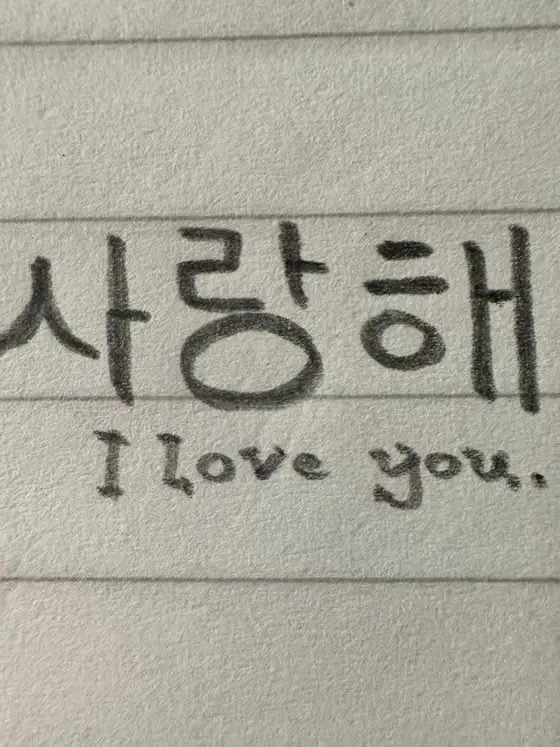 사랑해
I Love you.